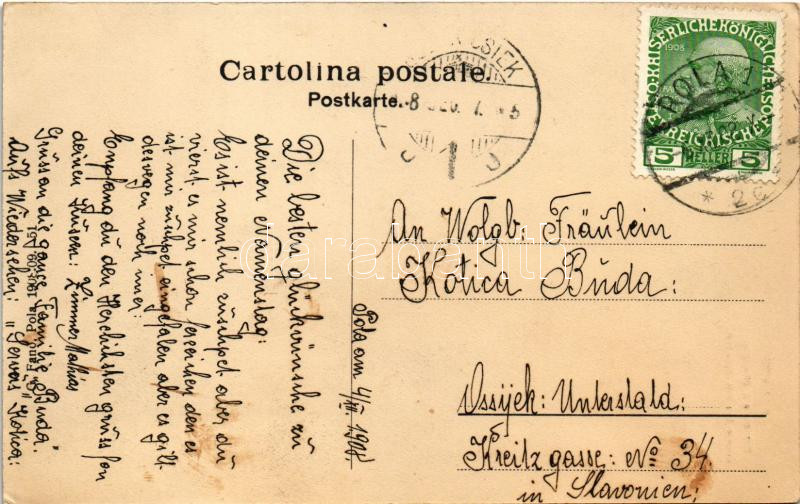 Cartolina postale.
Postkarte.
KAISERLICHE KÖNIGLICHE
ÖSTERREICHISCHE
1908
5 HELLER 5
POLA 1
* 2c
1
An Wolgb. Fräulein
Kotica Buda:
Ossijek: Unterstald:
Kreitz gasse: No 34
in Slavonien:
Pola am 4/III 190
Die besten glükwünsche zu
deinen Namenstag:
Es ist nemlich zuschpet aber du
mir schon den es
ist mir zuschpet eingefalen aber es gilt
deswegen noch immer:
Empfang du den Herzlichsten grüss fon
deinen Zimmer Mathias
Grüss an die ganze Familie Buda:
Aufs Wiedersehen: "Servus Kotica:"
darabanth